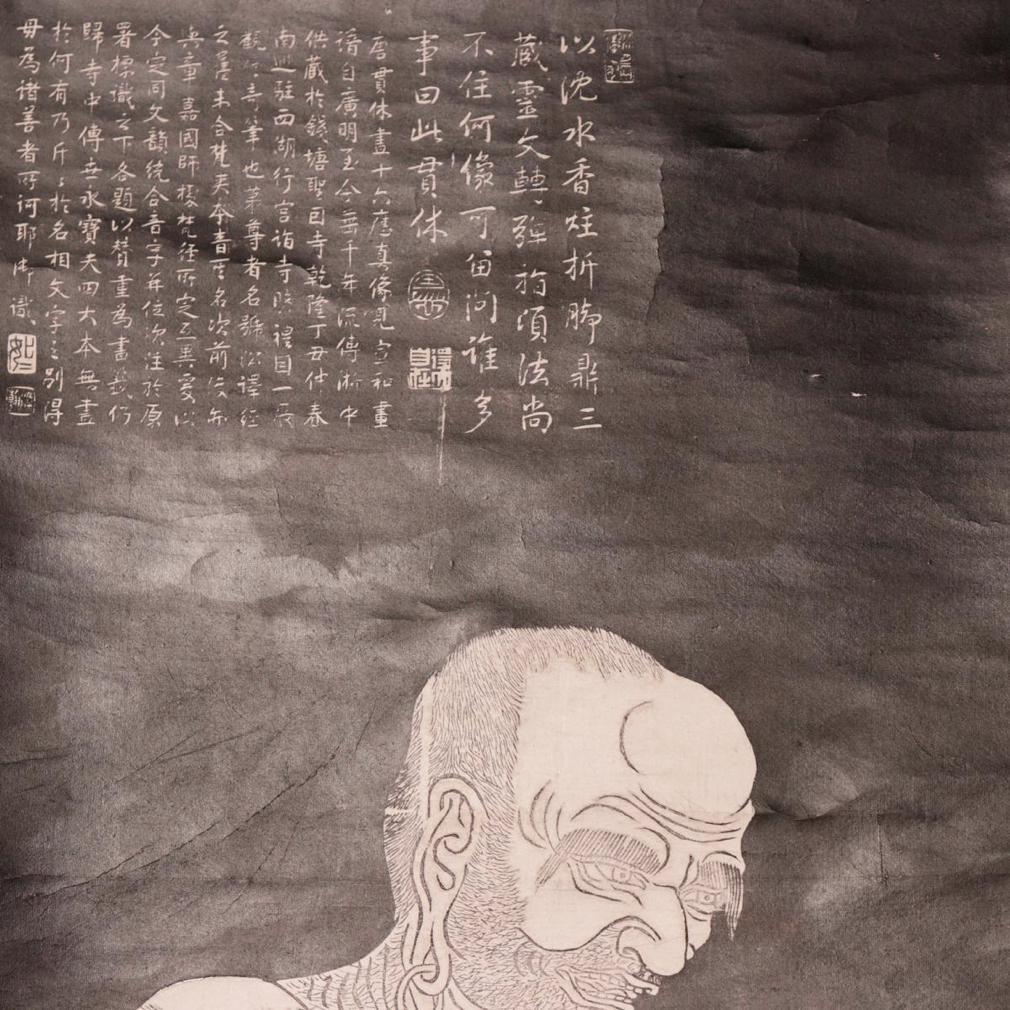 以沈水香炷折脚鼎三
藏靈文轉彈指頃法尚
不住何像可留問誰多
事曰此貫休
唐貫休畫十六應真像見宣和畫
譜自廣明至今垂千年流傳浙中
供藏於錢塘聖因寺乾隆丁丑仲春
南巡駐西湖行宫詣寺瞻禮因一展
觀信奇筆也第尊者名號沿譯經
之舊未合梵夾本音其名次前後亦
與章嘉國師據梵經所定互異爰以
今定同文韻統合音字并位次注於原
署標識之下各題以贊重為書籤仍
歸寺中傳世永寶夫四大本無畫
於何有乃斤斤於名相文字之別得
毋為諸尊者所訶耶御識